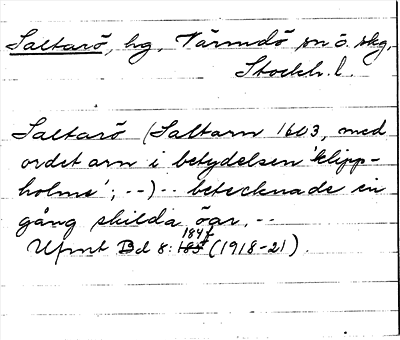 Saltarö, hg, Värmdö sn ö. skg,
Stockh. l.
Saltarö (Saltarn 1603, med
ordet arn i betydelsen 'klipp-
holme'; --) -- betecknade en
gång skilda öar, --
184f
Ufmt Bd 8: 185 (1918-21).